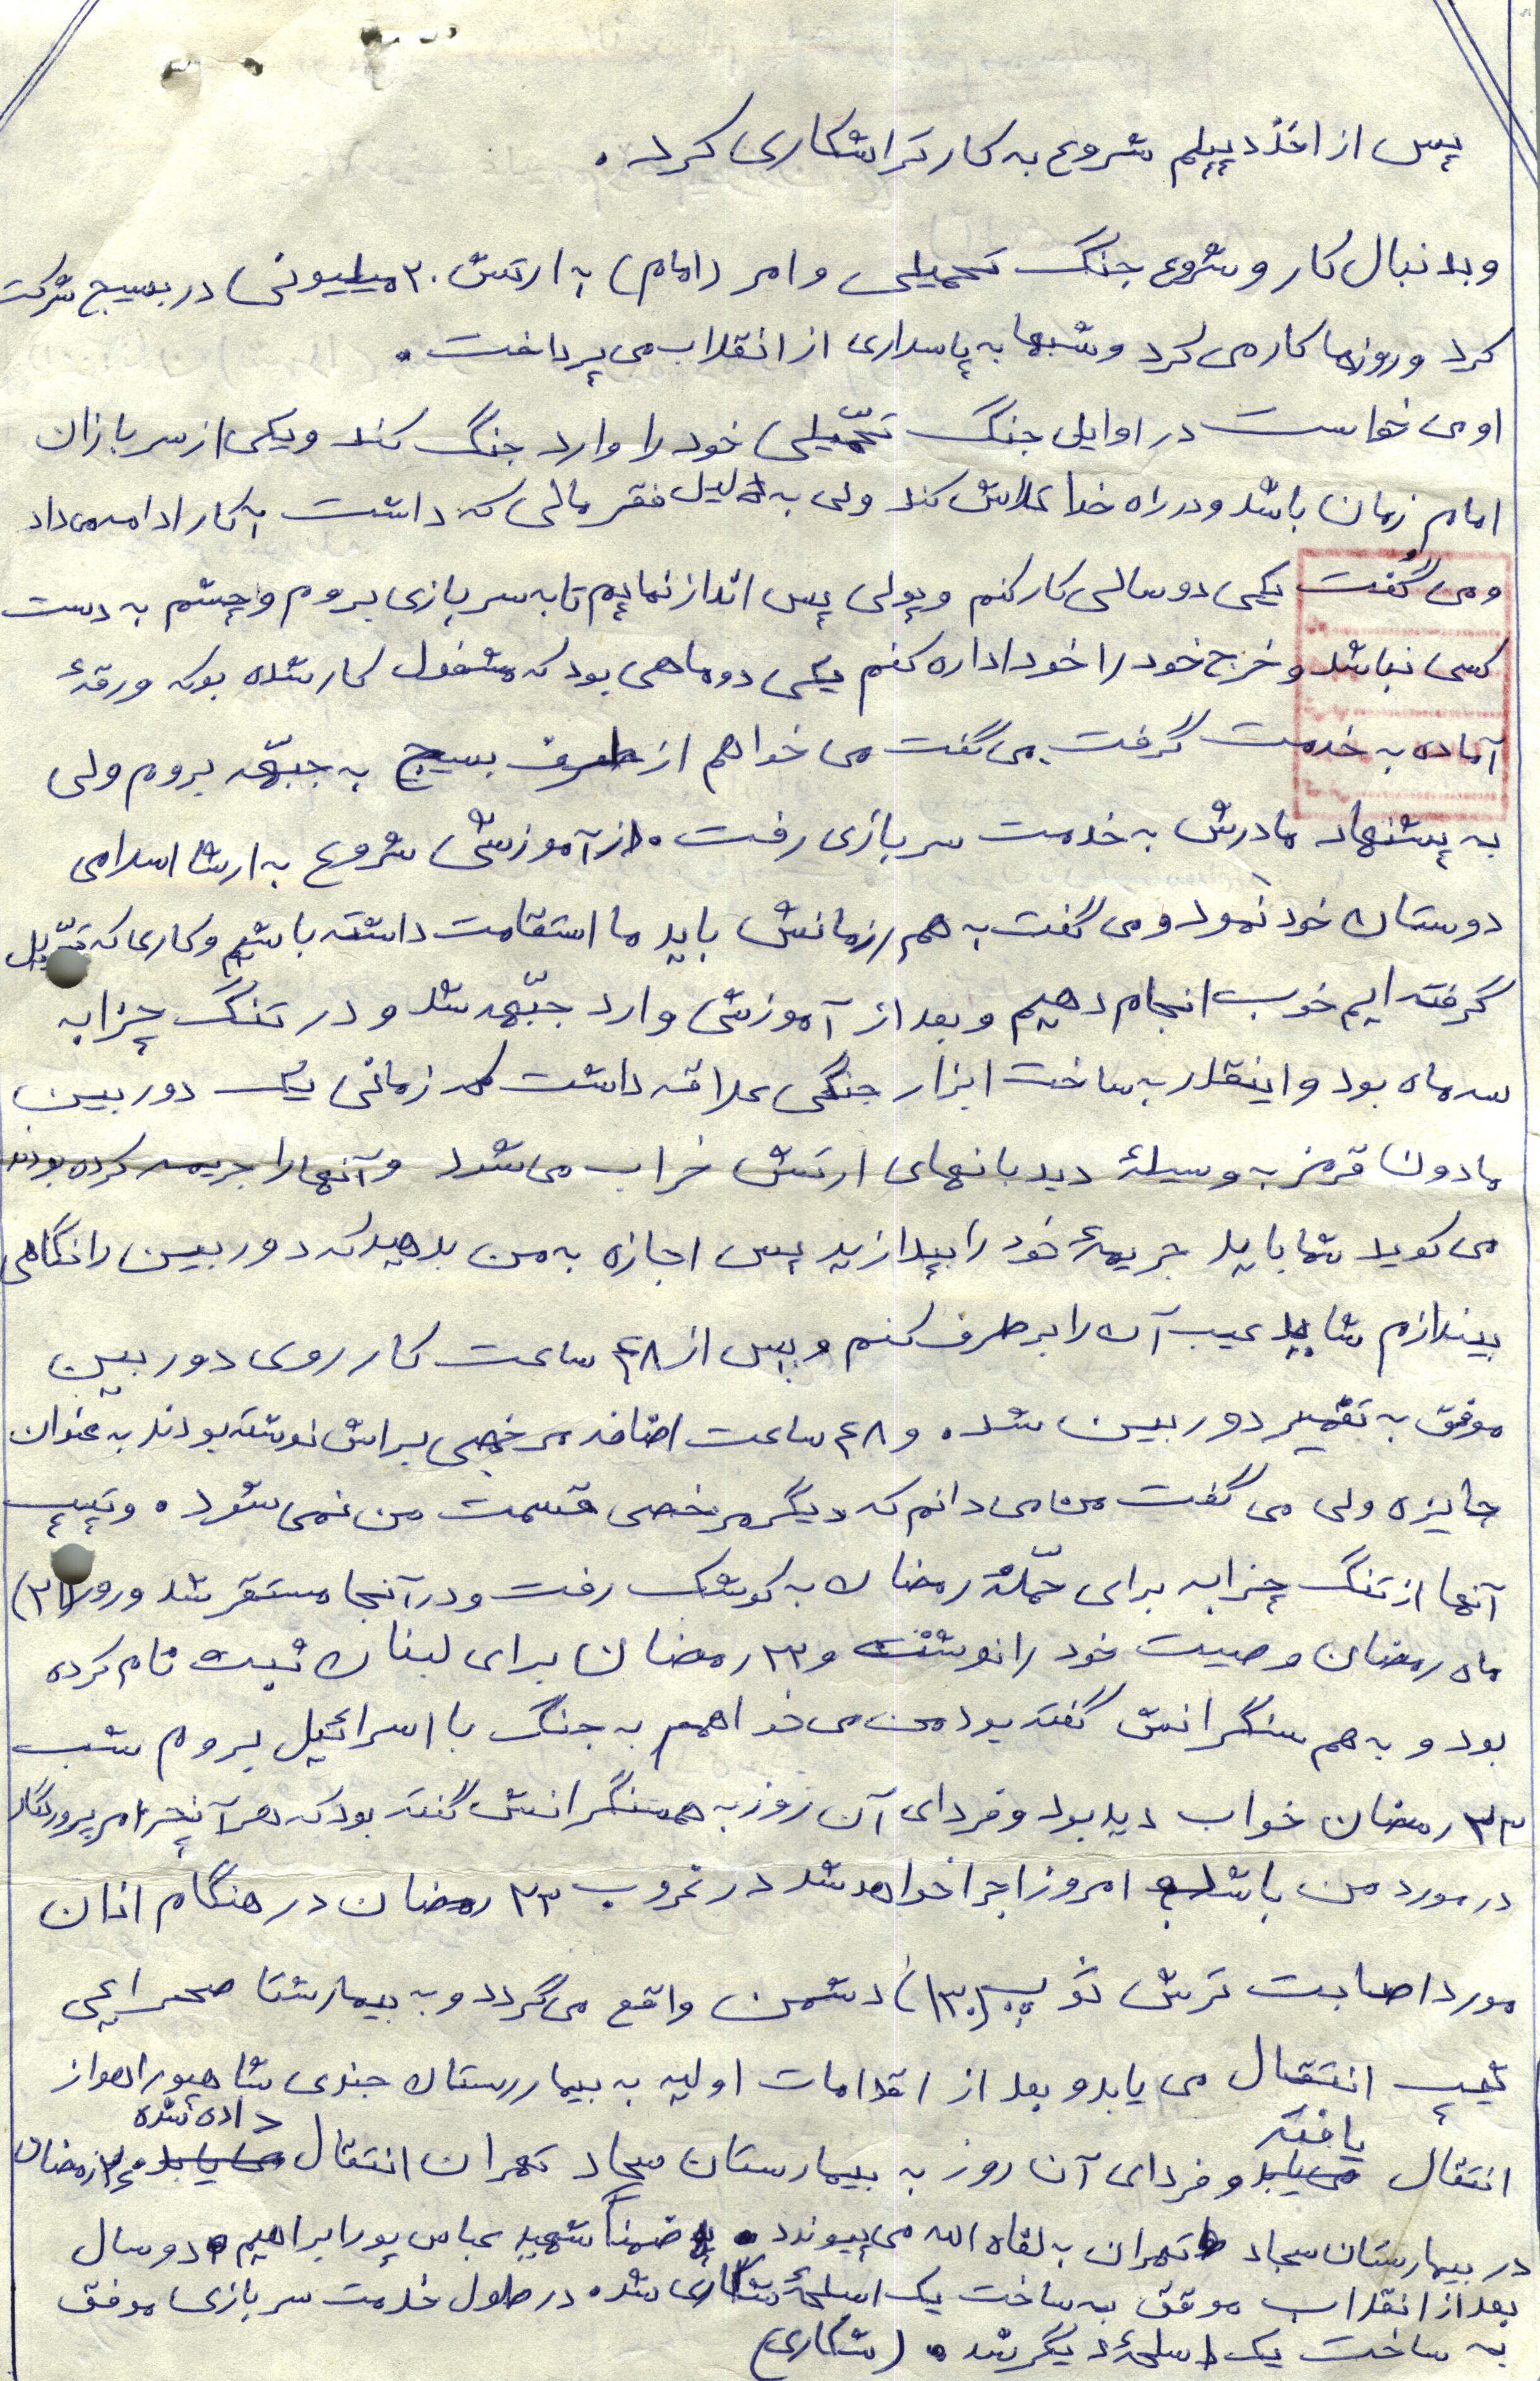 پس از اخذ دیپلم شروع به کار تراشکاری کرد.
و بدنبال کار و شروع جنگ تحمیلی و امر (امام) به ارتش ۲۰ میلیونی در بسیج شرکت
کرد و روزها کار می کرد و شبها به پاسداری از انقلاب می پرداخت.
او می خواست در اوایل جنگ تحمّیلی خود را وارد جنگ کند و یکی از سربازان
امام زمان باشد و در راه خدا تلاش کند ولی به دلیل فقر مالی که داشت به کار ادامه می داد
و می گفت یکی دو سالی کار کنم و پولی پس انداز نمایم تا به سربازی بروم و چشم به دست
کسی نباشد و خرج خود را خود اداره کنم یکی دو ماهی بود که مشغول کار شده بوکه ورقۀ
آماده به خدمت گرفت. می گفت می خواهم از طرف بسیج به جبّهه بروم ولی
به پشنهاد مادرش به خدمت سربازی رفت. از آموزشی شروع به ارشا اسلامی
دوستان خود نمود و می گفت به هم رزمانش باید ما استقامت داشته باشیم و کاری که تحّویل
گرفته ایم خوب انجام دهیم و بعد از آموزشی وارد جبّهه شد و در تنگ چزابه
سه ماه بود و اینقدر به ساخت ابزار جنگی علاقه داشت که زمانی یک دوربین
مادون قرمز به وسیلۀ دیدبانهای ارتش خراب می شود و آنها را جریمه کرده بودند
می گوید شما باید جریمۀ خود را بپدازید پس اجازه به من بدهید که دوربین را نگاهی
بیندازم شاید عیب آن را برطرف کنم و پس از ۴۸ ساعت کار روی دوربین
موفق به تعمیر دوربین شد. و ۴۸ ساعت اضافه مرخصی براش نوشته بودند به عنوان
جایزه ولی می گفت من می دانم که دیگر مرخصی قسمت من نمی شود. و تیپ
آنها از تنگ چزابه برای حمّلۀ رمضان به کوشک رفت و در آنجا مستقر شد و روز (۲۱)
ماه رمضان وصیت خود را نوشت و ۲۲ رمضان برای لبنان ثبت نام کرده
بود و به هم سنگرانش گفته بود من می خواهم به جنگ با اسرائیل بروم شب
۲۳ رمضان خواب دید بود و فردای آن روز به همسنگرانش گفته بود که هر آنچه امر پروردگار
در مورد من باشد امروز اجرا خواهد شد در غروب ۲۳ رمضان در هنگام اذان
مورد اصابت ترش توپ (۱۳۰) دشمن واقع می گردد و به بیمارشتا صحرایی
تیپ انتقال می یابد و بعد از اقدامات اولیه به بیماررستان جندی شاهپور اهواز
انتقال یافته و فردای آن روز به بیمارستان سجاد تهران انتقال داده شده ۲۴ رمضان
در بیمارستان سجاد تهران به لقاه الله می پیوندد. ضمناً شهید عباس پور ابراهیم دو سال
بعد از انقلاب موفق به ساخت یک اسلحۀ شکاری شد. در طول خدمت سربازی موفق
به ساخت یک اسلحۀ دیگر شد. (شکاری)